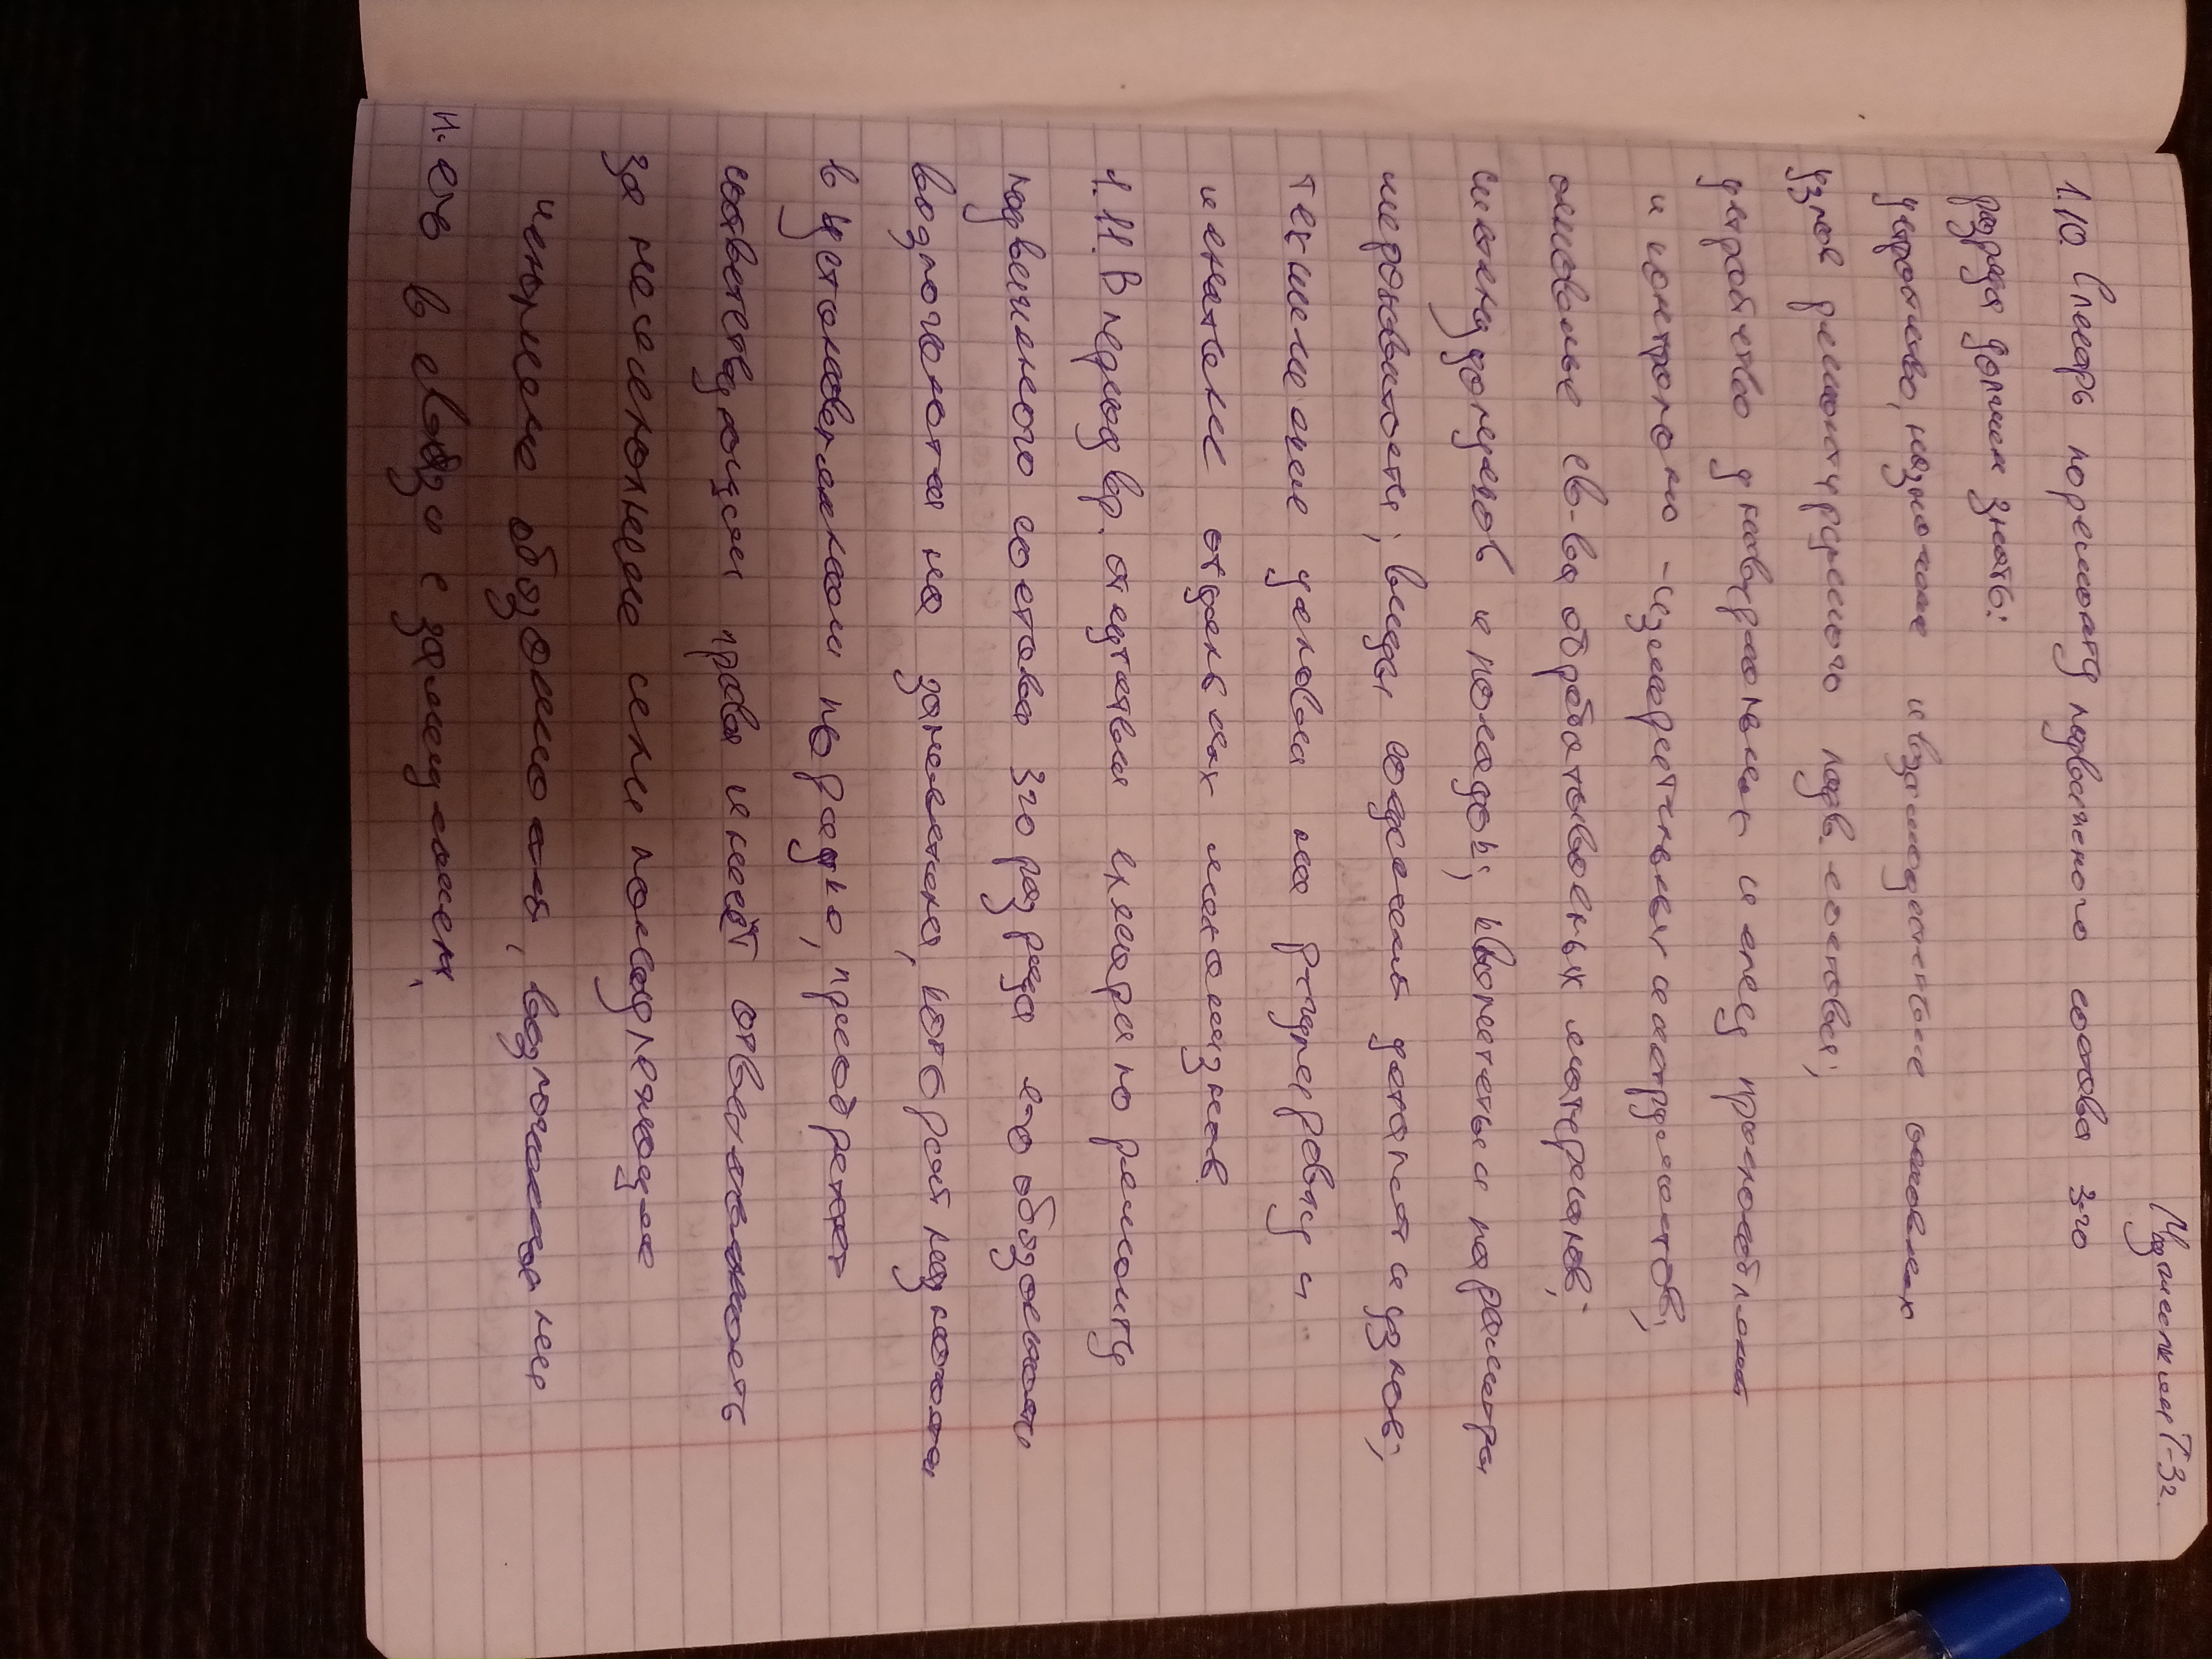 1.10. Слесарь по ремонту подвижного состава 3-го
разряда должен знать:
устройство, назначение и взаимодействие основных
узлов ремонтируемого подв. состава;
устройство универсальных и спец. приспособлений
и контрольно-измерительных инструментов;
основные св-ва обрабатываемых материалов;
система допусков и посадок; квалитеты и параметры
шероховатости; виды соединений деталей и узлов;
технические условия на регулировку и
испытание отдельных механизмов
1.11. В период вр. отсутствия слесаря по ремонту
подвижного состава 3го разряда его обязанности
возлагаются на заместителя, который назначается
в установленном порядке, приобретает
соответствующие права и несёт ответственность
за неисполнение или ненадлежащее
исполнение обязанностей, возложенных на
н. его в связи с замещением.